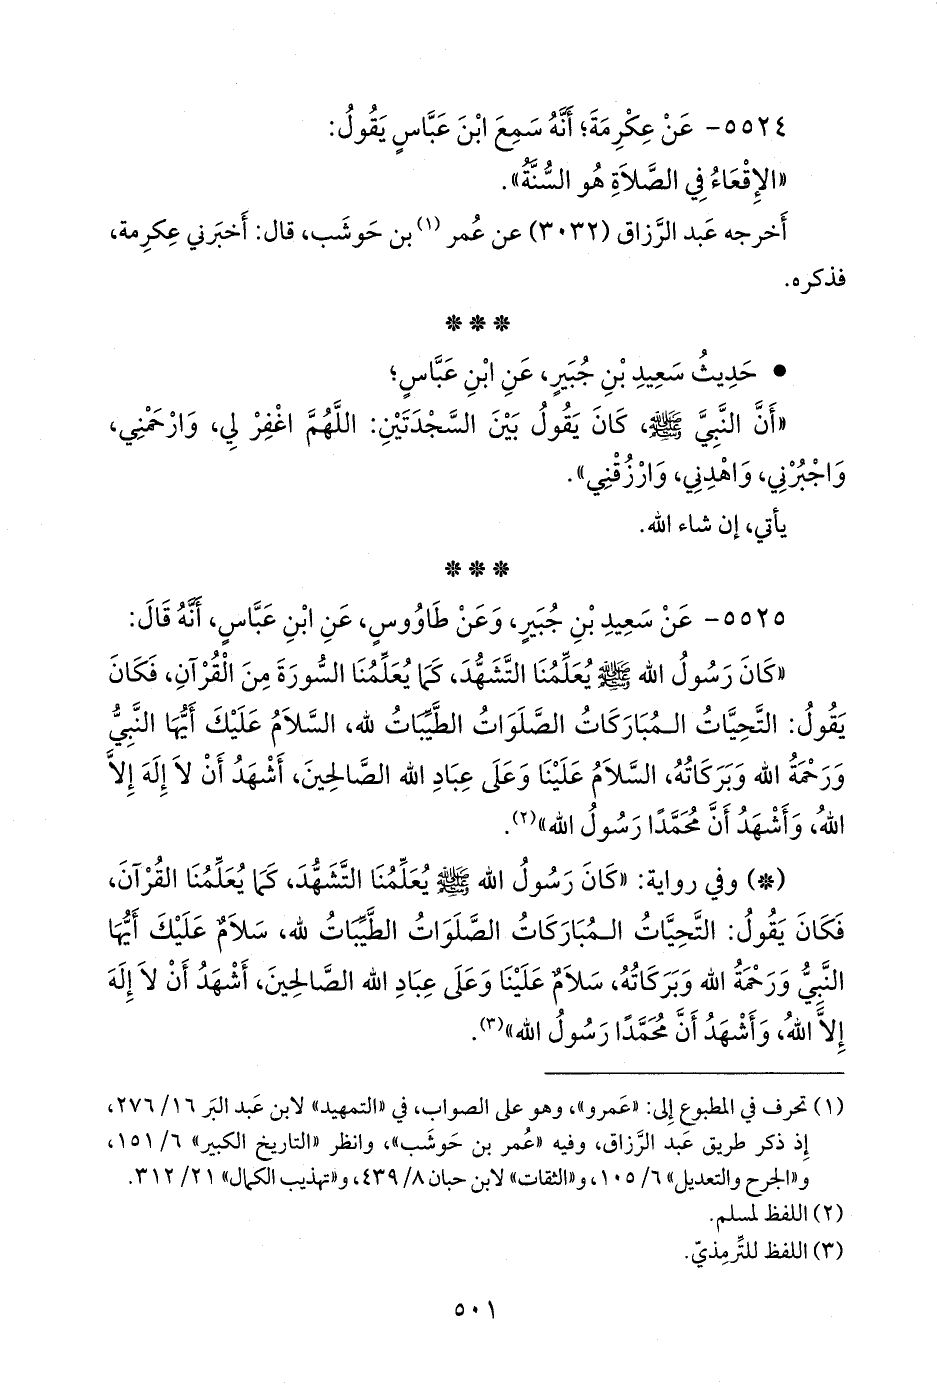 ٥٥٢٤- عَنْ عِكْرِمَةَ؛ أَنَّهُ سَمِعَ ابْنَ عَبَّاسٍ يَقُولُ:
«الإِقْعَاءُ فِي الصَّلاَةِ هُوَ السُّنَّةُ».
أَخرجه عَبد الرَّزاق (٣٠٣٢) عن عُمر (١) بن حَوشَب، قال: أَخبَرني عِكرِمة،
فذكره.
***
● حَدِيثُ سَعِيدِ بْنِ جُبَيرٍ، عَنِ ابْنِ عَبَّاسٍ؛
«أَنَّ النَّبِيَّ ﷺ، كَانَ يَقُولُ بَيْنَ السَّجْدَتَيْنِ: اللَّهُمَّ اغْفِرْ لِي، وَارْحَمْنِي،
وَاجْبُرْنِي، وَاهْدِنِي، وَارْزُقْنِي».
يأتي، إن شاء الله.
***
٥٥٢٥- عَنْ سَعِيدِ بْنِ جُبَيرٍ، وَعَنْ طَاوُوسٍ، عَنِ ابْنِ عَبَّاسٍ، أَنَّهُ قَالَ:
«كَانَ رَسُولُ الله ﷺ يُعَلِّمُنَا التَّشَهُّدَ، كَمَا يُعَلِّمُنَا السُّورَةَ مِنَ الْقُرْآنِ، فَكَانَ
يَقُولُ: التَّحِيَّاتُ الـمُبَارَكَاتُ الصَّلَوَاتُ الطَّيِّبَاتُ لله، السَّلاَمُ عَلَيْكَ أَيُّهَا النَّبِيُّ
وَرَحْمَةُ الله وَبَرَكَاتُهُ، السَّلاَمُ عَلَيْنَا وَعَلَى عِبَادِ الله الصَّالِحِينَ، أَشْهَدُ أَنْ لاَ إِلَهَ إِلاَّ
اللهُ، وَأَشْهَدُ أَنَّ مُحَمَّدًا رَسُولُ الله»(٢).
(*) وفي رواية: «كَانَ رَسُولُ الله ﷺ يُعَلِّمُنَا التَّشَهُّدَ، كَمَا يُعَلِّمُنَا الْقُرْآنَ،
فَكَانَ يَقُولُ: التَّحِيَّاتُ الـمُبَارَكَاتُ الصَّلَوَاتُ الطَّيِّبَاتُ لله، سَلاَمٌ عَلَيْكَ أَيُّهَا
النَّبِيُّ وَرَحْمَةُ الله وَبَرَكَاتُهُ، سَلاَمٌ عَلَيْنَا وَعَلَى عِبَادِ الله الصَّالِحِينَ، أَشْهَدُ أَنْ لاَ إِلَهَ
إِلاَّ اللهُ، وَأَشْهَدُ أَنَّ مُحَمَّدًا رَسُولُ الله»(٣).
(١) تحرف في المطبوع إِلى: «عَمرو»، وهو على الصواب، في «التمهيد» لابن عَبد البَر ١٦/ ٢٧٦،
إِذ ذكر طريق عَبد الرَّزاق، وفيه «عُمر بن حَوشَب»، وانظر «التاريخ الكبير» ٦/ ١٥١،
و«الجرح والتعديل» ٦/ ١٠٥، و«الثقات» لابن حبان ٨/ ٤٣٩، و«تهذيب الكمال» ٢١/ ٣١٢.
(٢) اللفظ لمسلم.
(٣) اللفظ للتِّرمِذيّ.
٥٠١